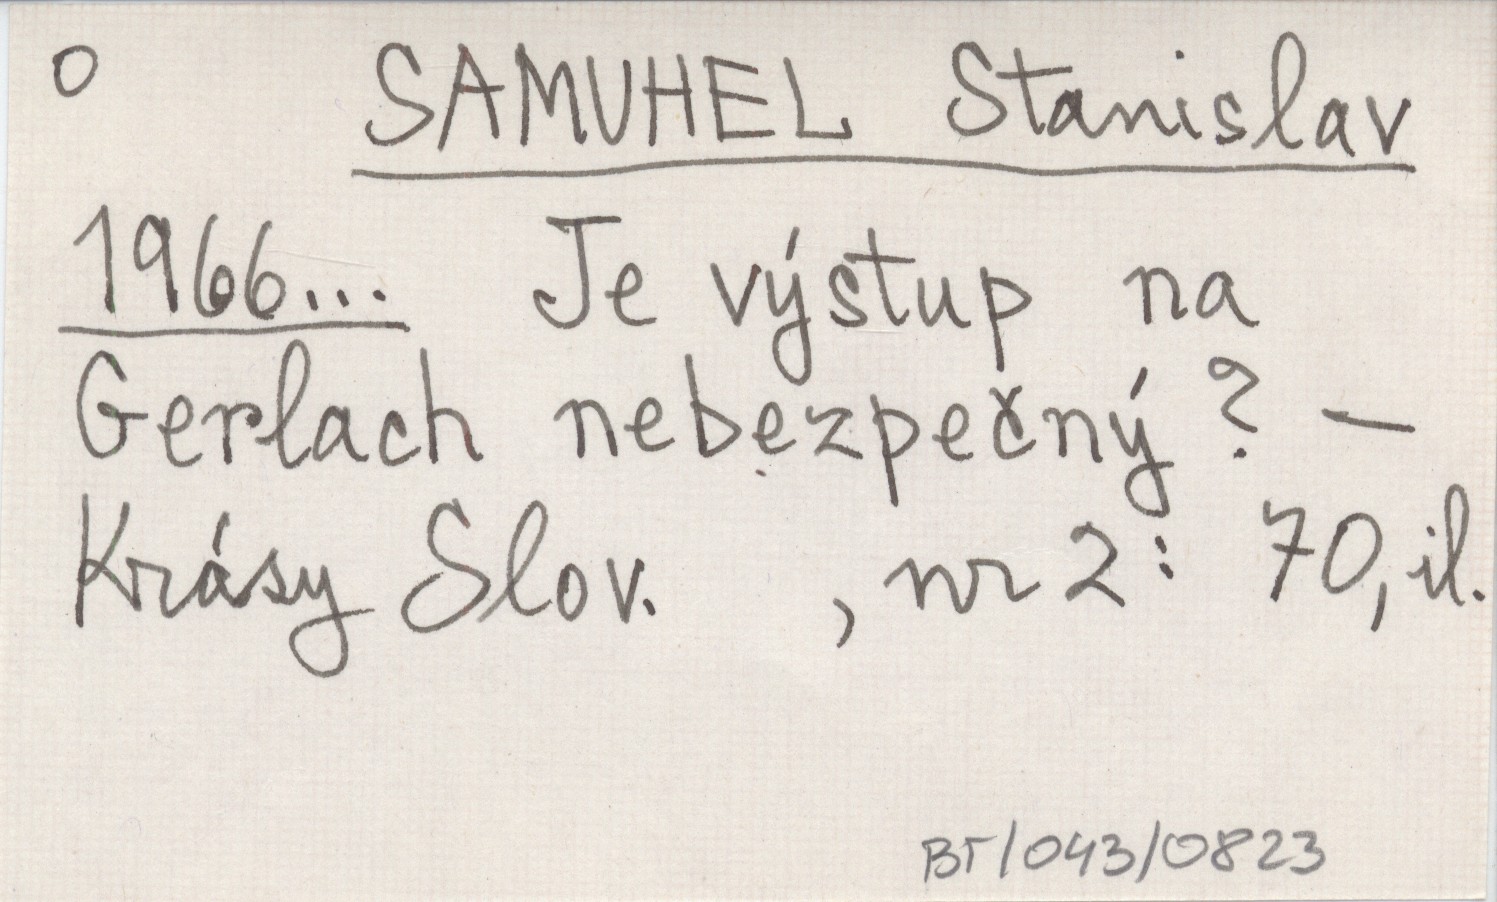 O SAMUHEL Stanislav
1966... Je výstup na
Gerlach nebezpečný? —
Krásy Slov. , nr 2: 70, il.
BT/043/0823